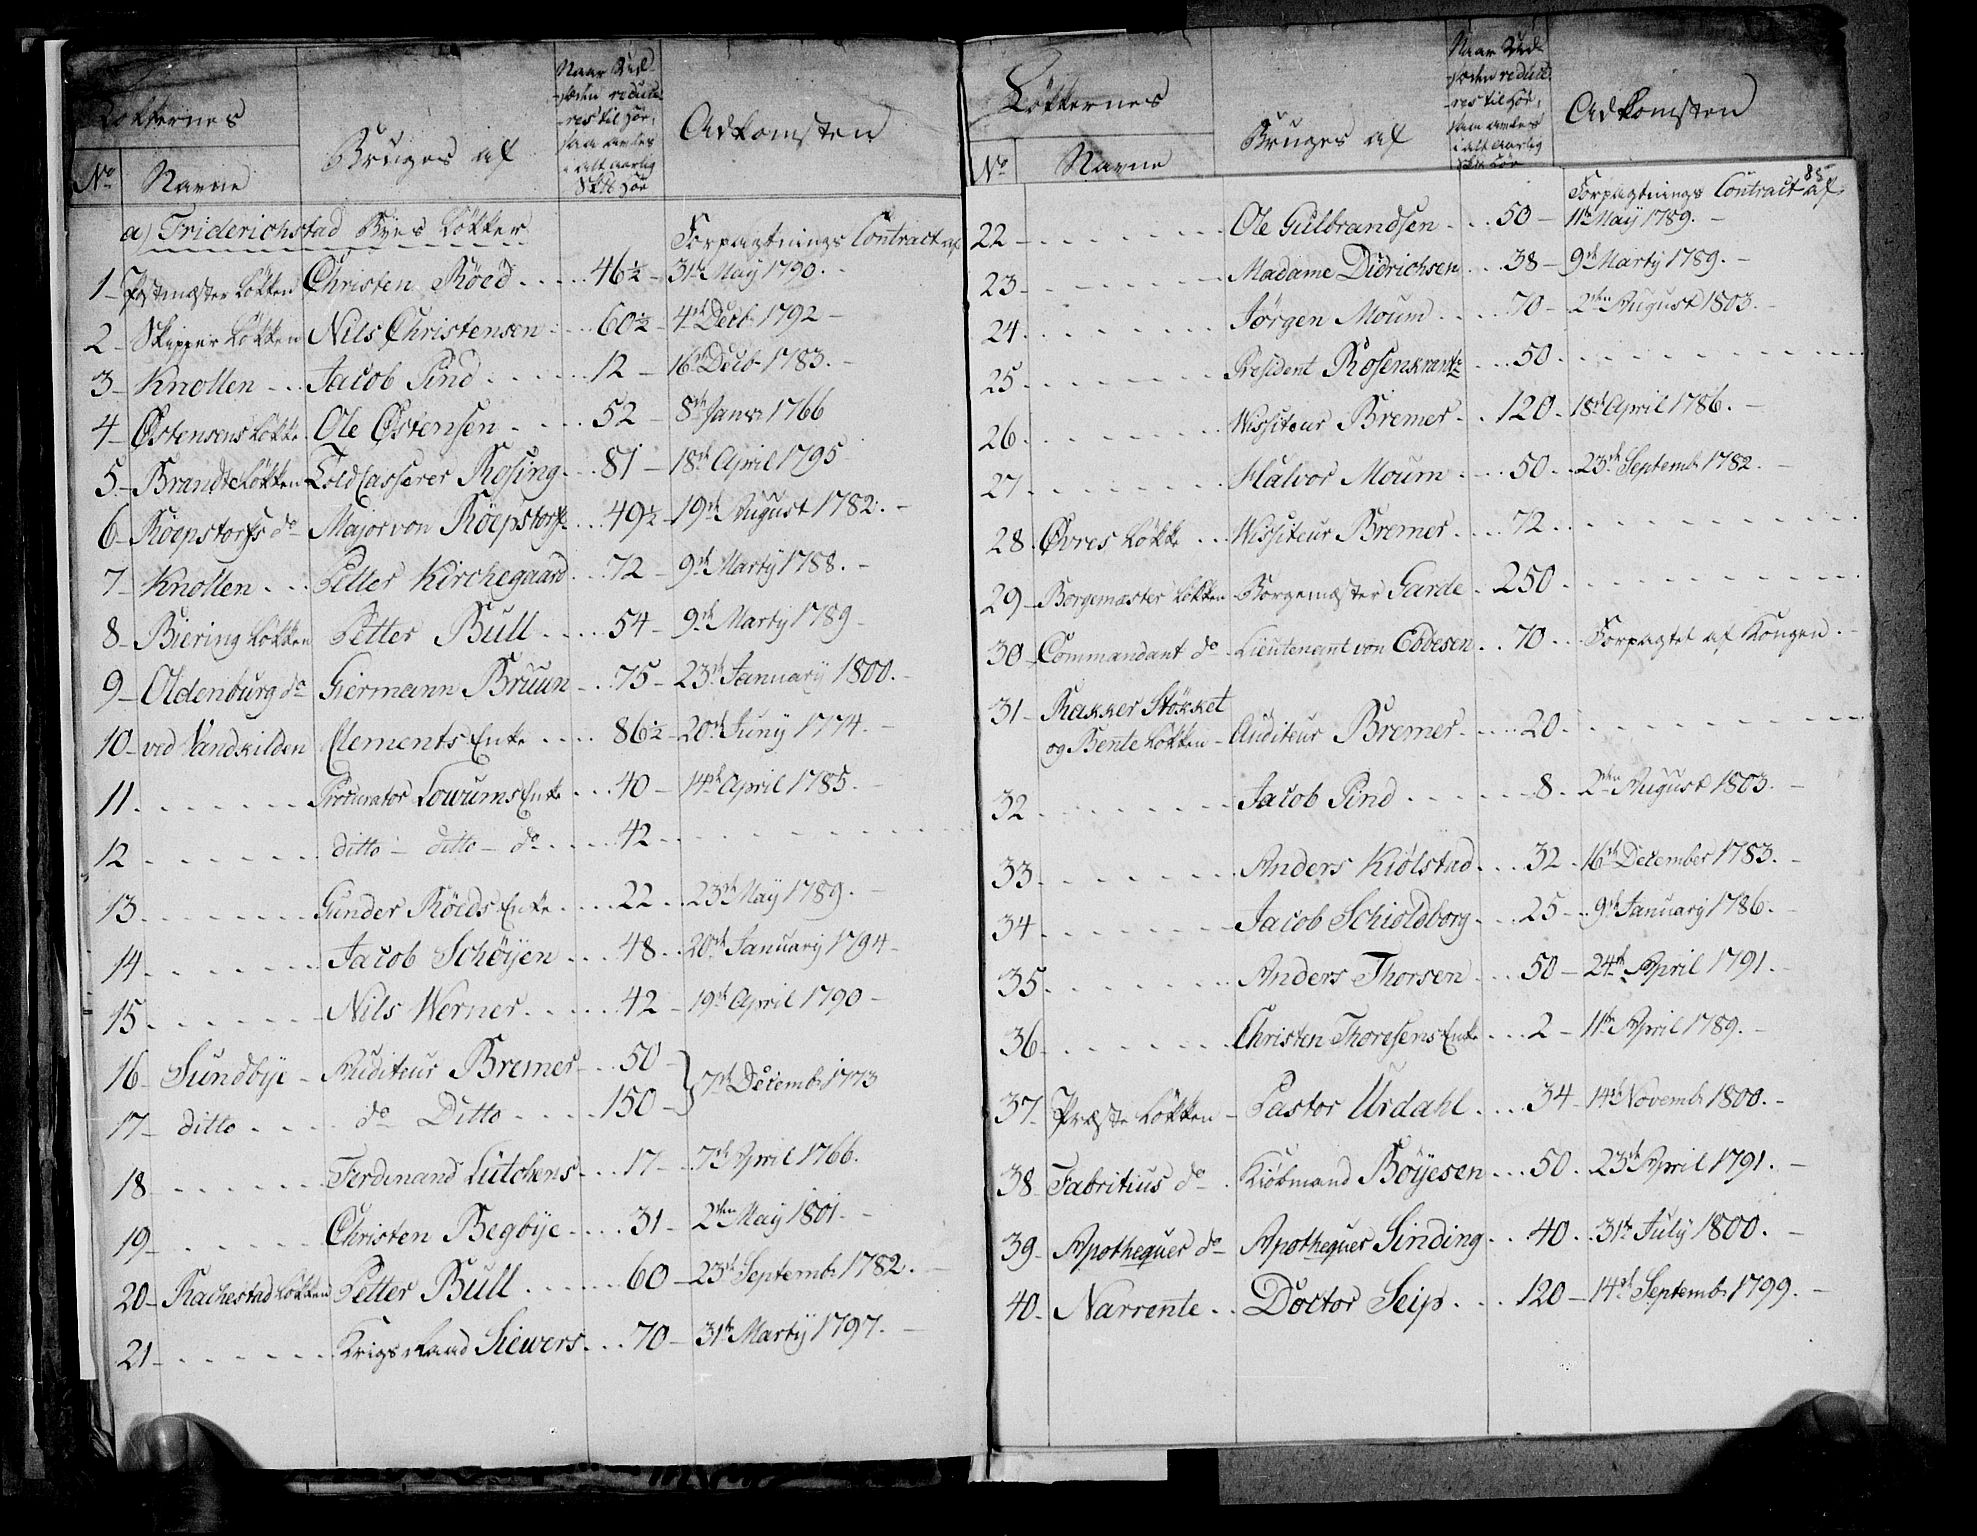 Løkkernes
No
Navne
Bruges af
Naar Ud-
-sæden reduce-
-res til Höe,
saa avles
i alt aarlig
Sk℔ Höe
Adkomsten
a) Friderichstad Byes Løkker
Forpagtnings Contract af
1 - Postmæster Løkken Christen Röed .... 46½ - 31te May 1790. -
2 - Skipper Løkken Nils Christensen ... 60½ - 4de Decb. 1792 -
3 - Knollen ... Jacob Pind ..... 12 - 16de Decb. 1783. -
4 - Østensens Løkke Ole Østensen .... 52 - 8de Janr. 1766
5 - Brandt Løkken Told Casserer Rosing ... 81 - 18de April 1795
6 - Röepstorfs do Major von Röepstorf ... 49½ - 19de August 1782. -
7 - Knollen ... Petter Kirchegaard ... 72 - 9de Marty 1788. -
8 - Biering Løkken Petter Bull ..... 54 - 9de Marty 1789 -
9 - Oldenburg do Giermann Bruun ... 75 - 23de January 1800. -
10 - ved Vandkilden Clements Enke .... 86½ - 20de Juny 1774. -
11 ....... Procurator Lowums Enke ... 40 - 14de April 1785. -
12 ....... ditto - ditto - do ..... 42 ..........
13 ....... Gunder Röeds Enke .... 22 .. 23de May 1789. -
14 ....... Jacob Schøyen ... 48 .. 20de January 1794 -
15 ....... Nils Werner ..... 42 - 19de April 1790 -
16 - Sundbye - Auditeur Bremer ... 50 -
} 7de Decembr 1773
17 - ditto .... do Ditto ..... 150 -
18 ....... Ferdinand Lütchens ... 17 - 7de April 1766.
19 ....... Christen Begbye .... 31 - 2den May 1801. -
20 - Rachestad Løkken Petter Bull ..... 60 - 23de Septembr 1782. -
21 ....... Krigsraad Siewers ... 70 - 31te Marty 1797. -
Løkkernes
No
Navne
Bruges af
Naar Ud-
-sæden reduce-
-res til Höe,
saa avles
i alt aarlig
Sk℔ Höe
Adkomsten
85
Forpagtnings Contract af
22 ....... Ole Gulbrandsen ... 50 - 11te May 1789. -
23 ....... Madame Didrichsen ... 38 - 9de Marty 1789. -
24 ....... Jørgen Moum .... 70 - 2den August 1803. -
25 ....... President Rosenkrantz ... 50 ..........
26 ....... Wissiteur Bremer .. 120 - 18de April 1786. -
27 ....... Halvor Moum .... 50 .. 23de Septembr 1782. -
28. Øvres Løkke ... Wissiteur Bremer .... 72 ..........
29 - Borgemæster Løkken - Borgemæster Garde . 250 ..........
30 - Commandant do - Lieutenant von Ebbesen .. 70 ... Forpagtet af Kongen. -
31 - Rakker Støkket
og Bente Løkken - Auditeur Bremer ..... 20 ..........
32 ....... Jacob Pind ...... 8 . 2den August 1803. -
33 ....... Anders Kiølstad ... 32 - 16de December 1783. -
34 ....... Jacob Schioldborg ... 25 - 9de January 1786. -
35 ....... Anders Thorsen ... 50 - 24de April 1791. -
36 ....... Christen Thoresens Enke ... 2 - 11te April 1789. -
37 - Præste Løkken - Pastor Urdahl .... 34 - 14de Novembr 1800. -
38 - Fabritius do . Kiøbmand Böyesen ... 50 . 23de April 1791. -
39 - Apothequer do - Apothequer Sinding .. 40 .. 31te July 1800. -
40 - Narrente .. Doctor Seip ... 120 - 14de Septembr 1799. -